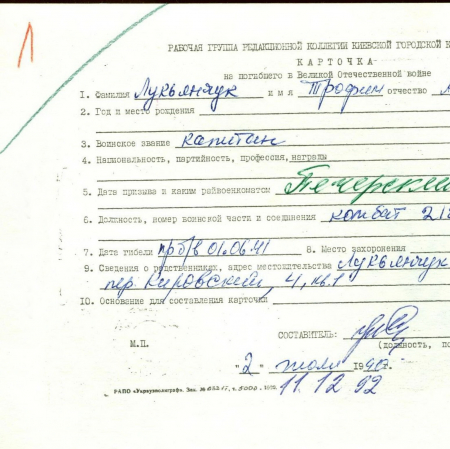 РАБОЧАЯ ГРУППА РЕДАКЦИОННОЙ КОЛЛЕГИИ КИЕВСКОЙ ГОРОДСКОЙ К
КАРТОЧКА
на погибшего в Великой Отечественной войне
1. Фамилия Лукьянчук имя Трофим отчество
2. Год и место рождения
3. Воинское звание капитан
4. Национальность, партийность, профессия, награды
5. Дата призыва и каким райвоенкоматом Печерским
6. Должность, номер воинской части и соединения комбат
7. Дата гибели пр б/в 01.06.41 8. Место захоронения
9. Сведения о родственниках, адрес местожительства Лукьянчук
пер. Кировский, 4, кв. 1
10. Основание для составления карточки
СОСТАВИТЕЛЬ:
(должность, по
М.П.
"2" июля 19
11.12 92
РАПО «Укрвузполиграф». Зак.